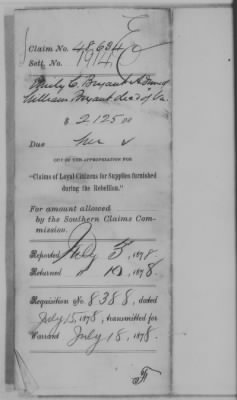 Claim No. 48,684
Sett. No. 1914 E
Emily C. Bryant Admx of
William Bryant dec'd of Va.
$ 2125.00
Due her ✓
OUT OF THE APPROPRIATION FOR
"Claims of Loyal Citizens for Supplies furnished
during the Rebellion."
For amount allowed
by the Southern Claims Com-
mission.
Reported July 5, 1878
Returned " 10, 1878.
Requisition No. 8388, dated
July 15, 1878, transmitted for
Warrant July 18, 1878.